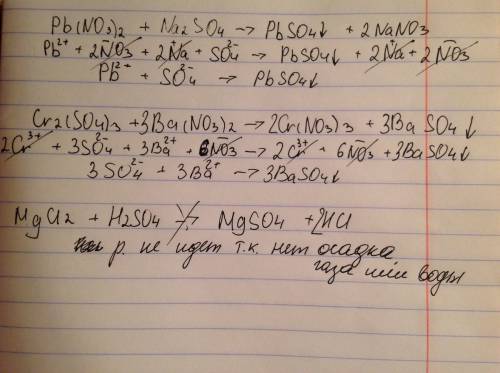 Pb(NO₃)₂ + Na₂SO₄ → PbSO₄↓ + 2NaNO₃
Pb²⁺ + 2NO₃⁻ + 2Na⁺ + SO₄²⁻ → PbSO₄↓ + 2Na⁺ + 2NO₃⁻
Pb²⁺ + SO₄²⁻ → PbSO₄↓
Cr₂(SO₄)₃ + 3Ba(NO₃)₂ → 2Cr(NO₃)₃ + 3BaSO₄↓
2Cr³⁺ + 3SO₄²⁻ + 3Ba²⁺ + 6NO₃⁻ → 2Cr³⁺ + 6NO₃⁻ + 3BaSO₄↓
3SO₄²⁻ + 3Ba²⁺ → 3BaSO₄↓
MgCl₂ + H₂SO₄ ↛ MgSO₄ + 2HCl
р. не идет т.к. нет осадка
газа или воды